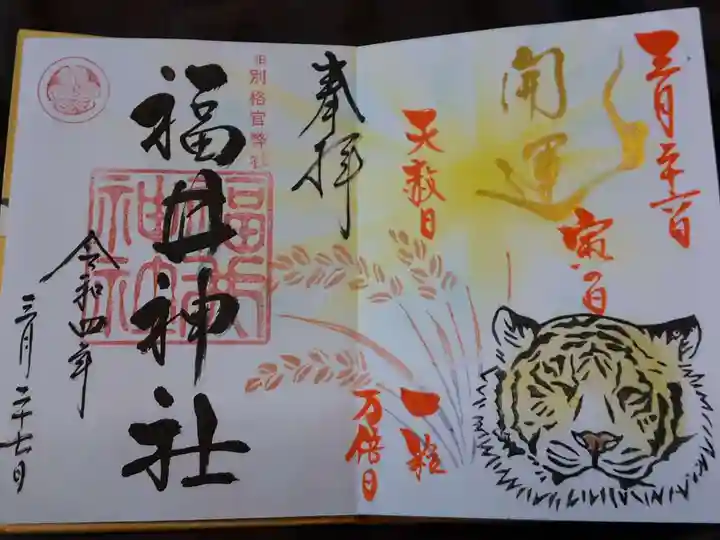 三月二十六日
寅の日
開運
天赦日
一粒
万倍日
奉拝
旧別格官幣社
福井神社
福井神社
令和四年
三月二十七日